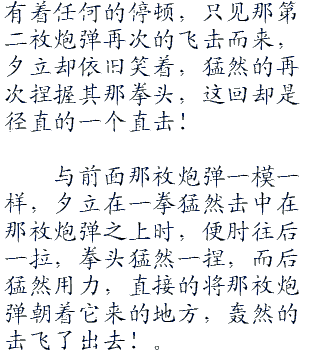 有着任何的停顿，只见那第
二枚炮弹再次的飞击而来，
夕立却依旧笑着，猛然的再
次捏握其那拳头，这回却是
径直的一个直击！
与前面那枚炮弹一模一
样，夕立在一拳猛然击中在
那枚炮弹之上时，便肘往后
一拉，拳头猛然一捏，而后
猛然用力，直接的将那枚炮
弹朝着它来的地方，轰然的
击飞了出去！。